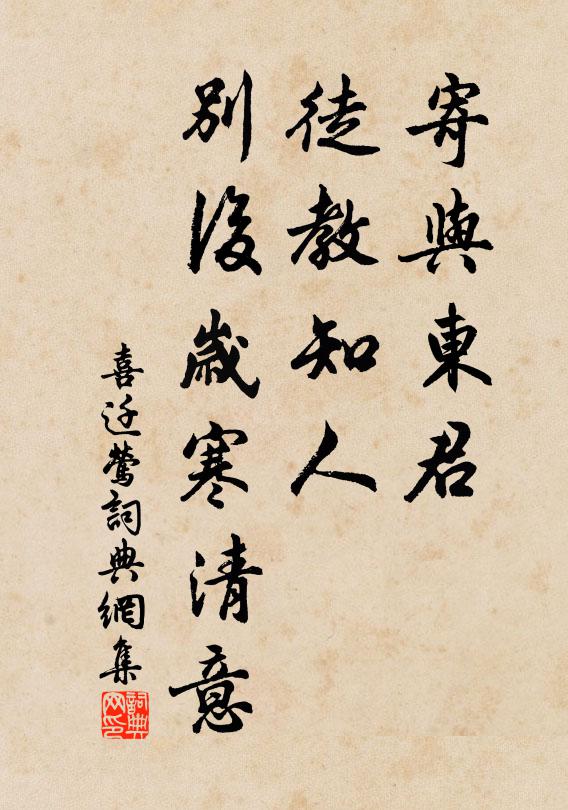 寄與東君
徒教知人
別後歲寒清意
喜迁鶯詞典網集
詞典
网印